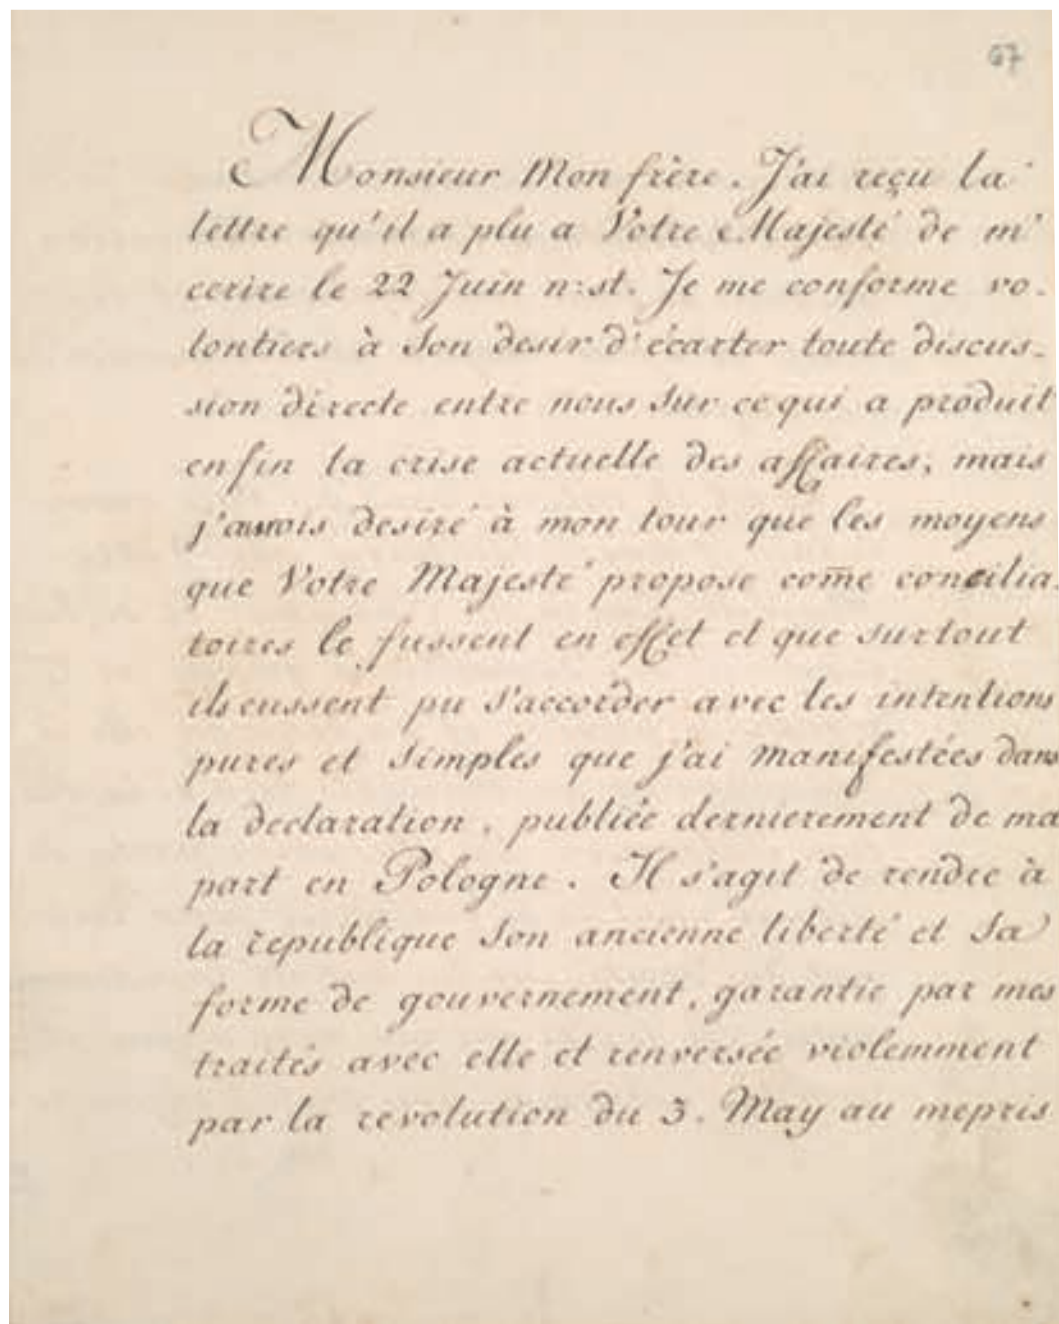 67
Monsieur Mon frère. J'ai reçu la
lettre qu'il a plu a Votre Majesté de m'
ecrire le 22 Juin n:st. Je me conforme vo-
lontiers à Son desir d'écarter toute discus-
sion directe entre nous Sur ce qui a produit
enfin la crise actuelle des affaires, mais
j'aurois desiré à mon tour que les moyens
que Votre Majesté propose com̄e concilia
toires le fussent en effet et que surtout
ils eussent pu s'accorder avec les intentions
pures et simples que j'ai manifestées dans
la declaration, publiée dernierement de ma
part en Pologne. Il s'agit de rendre à
la republique Son ancienne liberté et Sa
forme de gouvernement, garantie par mes
traités avec elle et renversée violemment
par la revolution du 3. May au mepris